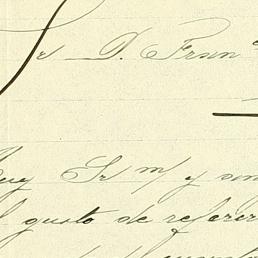 Sr D. Fran
Muy Sr m/ y
el gusto de referir